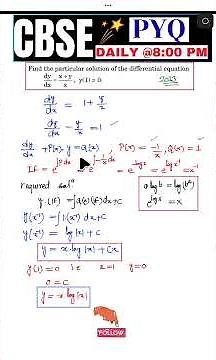 CBSE PYQ
DAILY @8:00 PM
Find the particular solution of the differential equation
dy/dx = (x+y)/x, y(1)=0. 2023
dy/dx = 1 + y/x
dy/dx - y/x = 1
dy/dx + P(x).y = Q(x) , P(x) = -1/x, Q(x) = 1
IF = e^∫ = e^∫-1/x dx = e^-log x = e^log x⁻¹ = x⁻¹
required solⁿ
y.(IF) = ∫Q(x)(IF)dx+C
a log b = log(bᵃ)
e^log x = x
y(x⁻¹) = ∫1(x⁻¹)dx+C
y(x⁻¹) = log|x| + C
y = x.log|x| + Cx
y(1)=0 i.e x=1 y=0
0 = C
y = x log|x|
FOLLOW